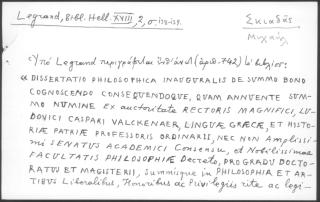 Legrand, Bibl. Hell. XVIII, 2, σ. 158-159.
Σκιαδᾶς
Μιχαήλ
Ὑπὸ Legrand περιγράφεται (ἀριθ. 742)
« DISSERTATIO PHILOSOPHICA INAUGURALIS DE SUMMO BONO
COGNOSCENDO CONSEQUENDOQUE, QUAM ANNUENTE SUM-
MO NUMINE Ex auctoritate RECTORIS MAGNIFICI, LU-
DOVICI CASPARI VALCKENAER, LINGUÆ GRÆCÆ, ET HISTO-
RIÆ PATRIÆ PROFESSORIS ORDINARII, NEC NON Amplissi-
mi SENATUS ACADEMICI Consensu, et Nobilissimae
FACULTATIS PHILOSOPHIÆ Decreto, PRO GRADU DOCTO-
RATUS ET MAGISTERII, Summisque in PHILOSOPHIA ET AR-
TIBUS Liberalibus, Honoribus ac Privilegiis rite ac legi-